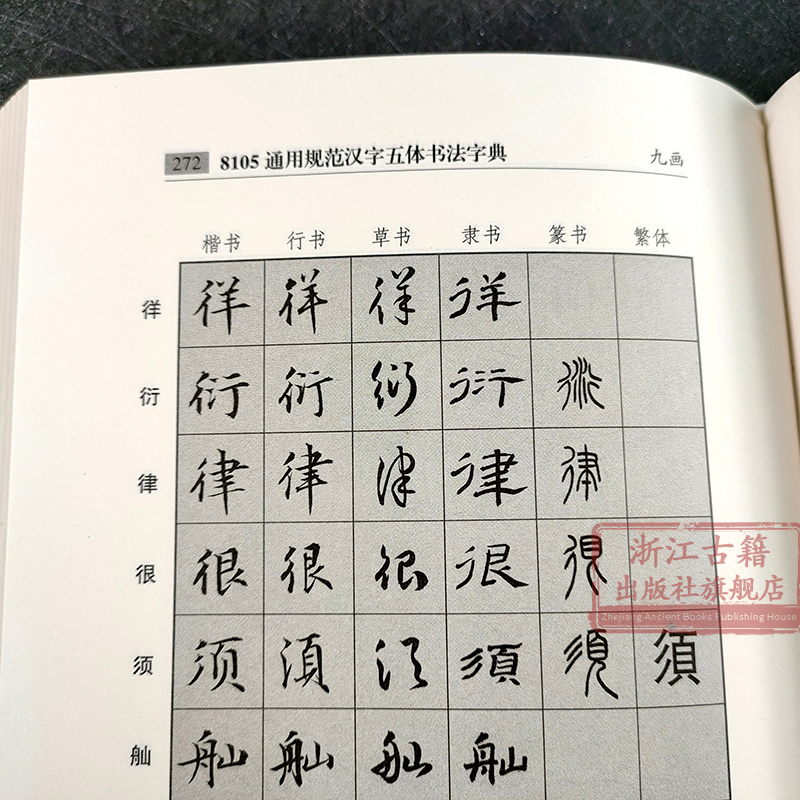 272 8105通用规范汉字五体书法字典 九画
楷书 行书 草书 隶书 篆书 繁体
徉 徉 徉 徉 徉
衍 衍 衍 衍 衍 衍
律 律 律 律 律 律
很 很 很 很 很 很
须 须 須 须 須 須 須
舢 舢 舢 舢 舢
浙江古籍
出版社旗舰店
Zhejiang Ancient Books Publishing House